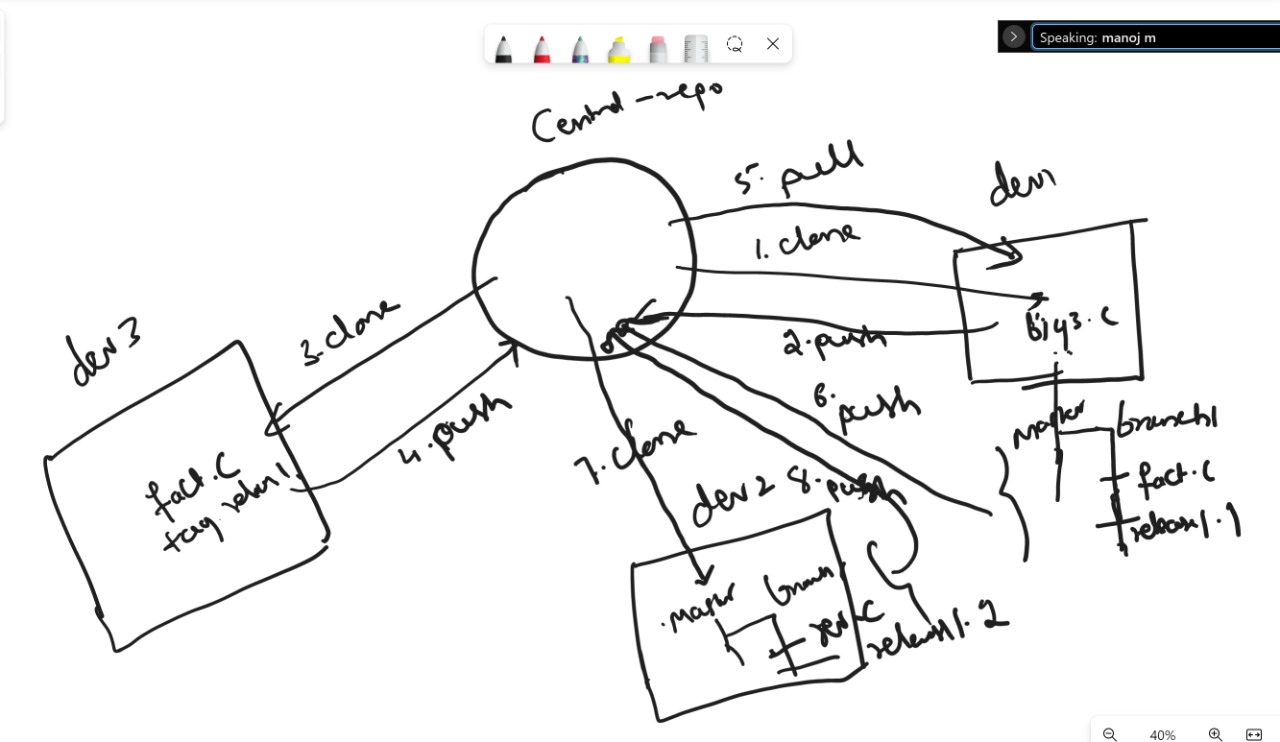 Speaking: manoj m
Central-repo
5. pull
dev1
1. clone
big3.c
2. push
dev 3
3. clone
4. push
fact.c
tag release1
6. push
master
branch1
fact.c
release1.1
7. clone
dev 2
8. push
master
branch
rev.c
release1.2
40%